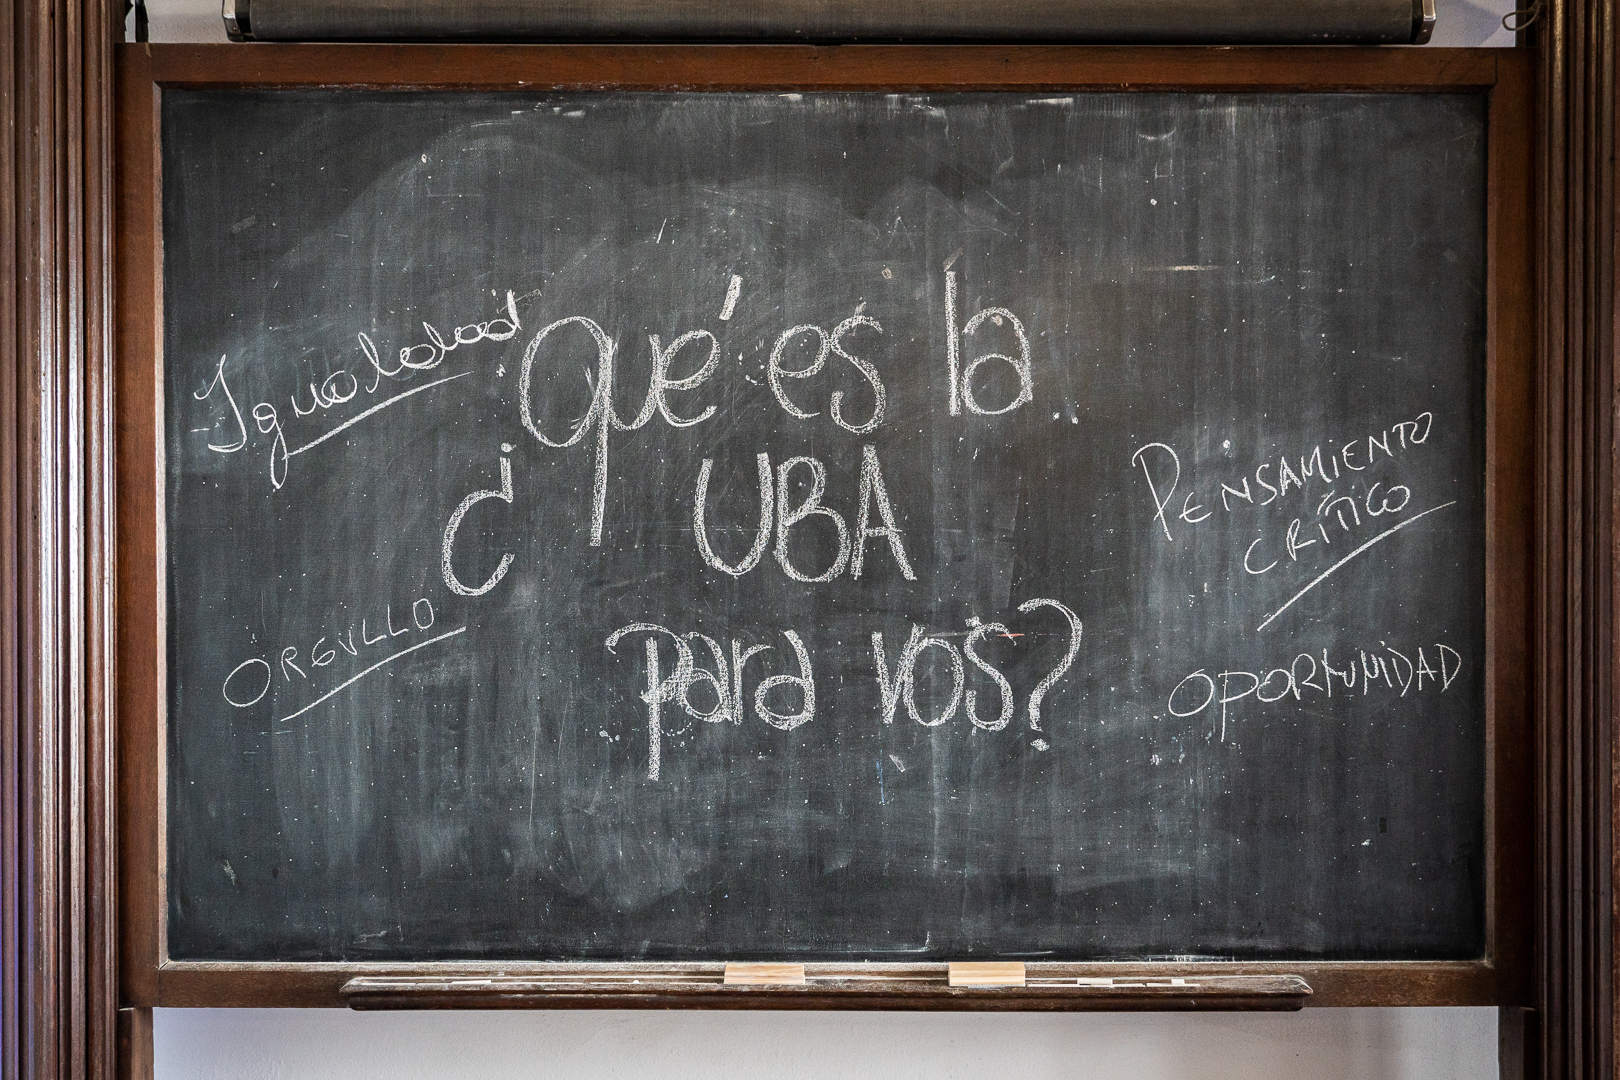 Igualdad
qué es la
¿ UBA
para vos?
PENSAMIENTO
CRÍTICO
ORGULLO
OPORTUNIDAD